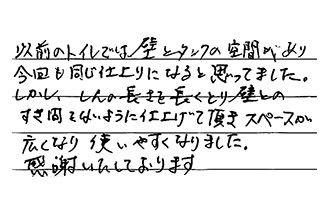 以前のトイレでは壁とタンクの空間があり
今回も同じ仕上りになると思ってました。
しかし、しんの長さを長くとり壁との
すき間もないように仕上げて頂きスペースが
広くなり使いやすくなりました。
感謝いたしております